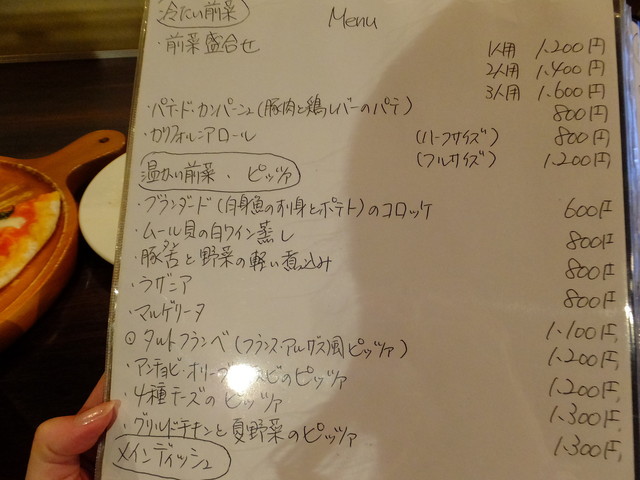 冷たい前菜
Menu
・前菜盛合せ 1人用 1,200円
2人用 1,400円
3人用 1,600円
・パテ・ド・カンパーニュ(豚肉と鶏レバーのパテ) 800円
・カリフォルニアロール (ハーフサイズ) 800円
(フルサイズ) 1,200円
温かい前菜、ピッツァ
・ブランダード(白身魚のすり身とポテト)のコロッケ 600円
・ムール貝の白ワイン蒸し 800円
・豚舌と野菜の軽い煮込み 800円
タン
・ラザニア 800円
・マルゲリータ 1,100円
◎タルトフランベ(フランス・アルザス風ピッツァ) 1,200円
・アンチョビ・オリーブ ビのピッツァ 1,200円
・4種チーズのピッツァ 1,300円
・グリルドチキンと夏野菜のピッツァ 1,300円
メインディッシュ